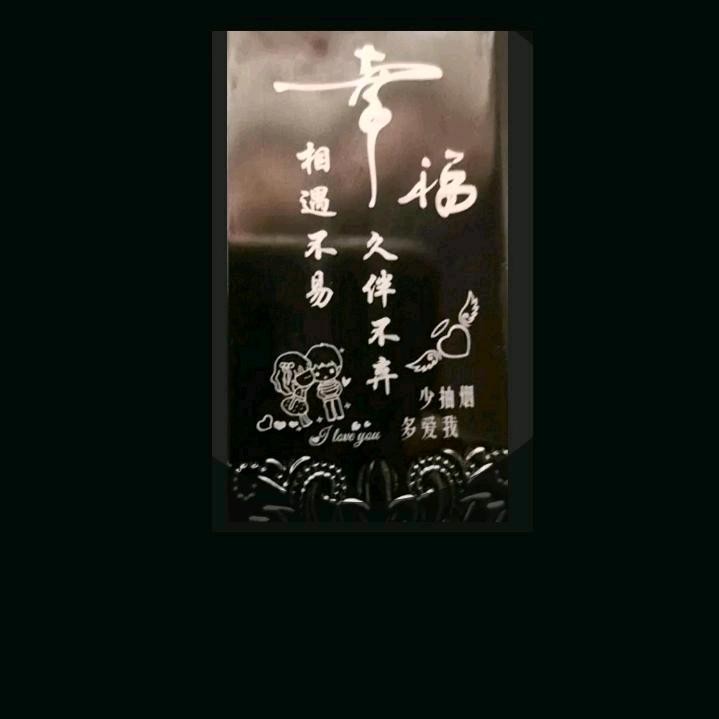 幸福
相遇不易
久伴不弃
少抽烟
多爱我
I love you